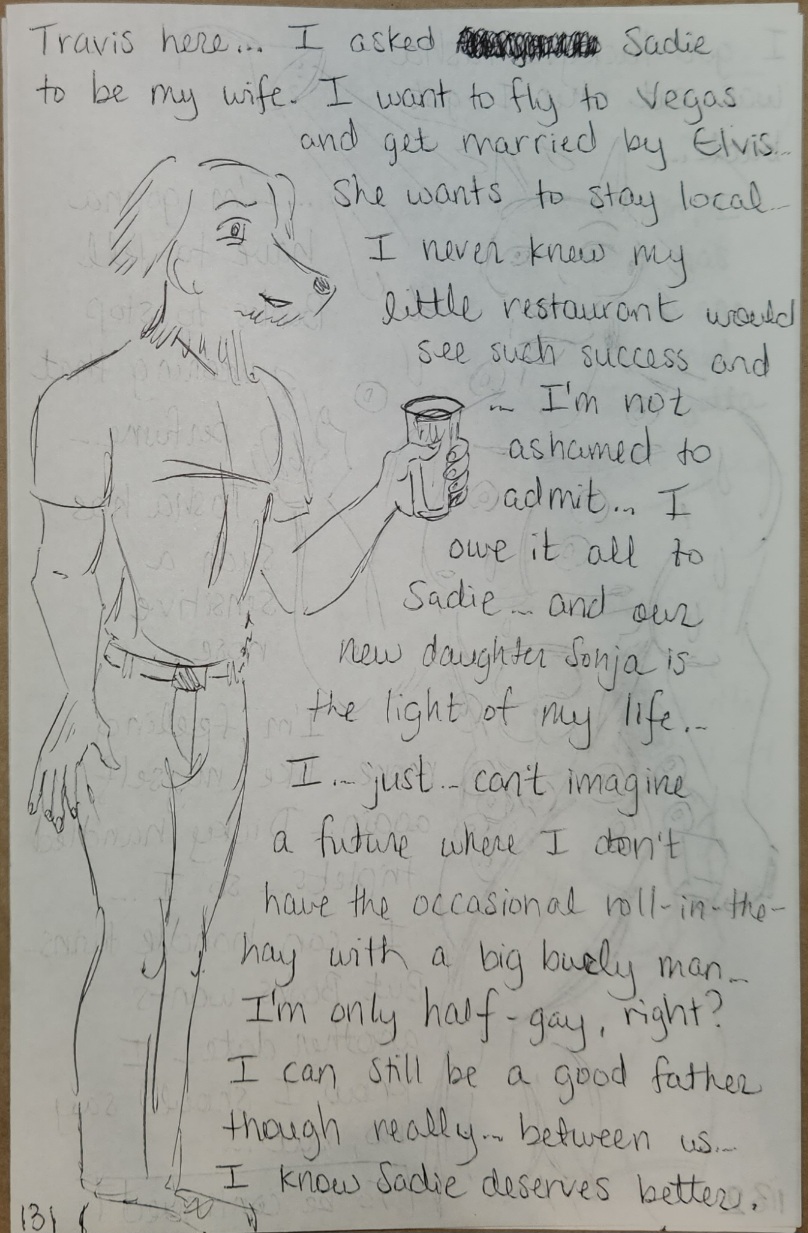 Travis here... I asked Sadie
to be my wife. I want to fly to Vegas
and get married by Elvis...
She wants to stay local...
I never knew my
little restaurant would
see such success and
... I'm not
ashamed to
admit... I
owe it all to
Sadie... and our
new daughter Sonja is
the light of my life...
I... just... can't imagine
a future where I don't
have the occasional roll-in-the-
hay with a big burly man...
I'm only half-gay, right?
I can still be a good father
though really... between us...
I know Sadie deserves better.
131